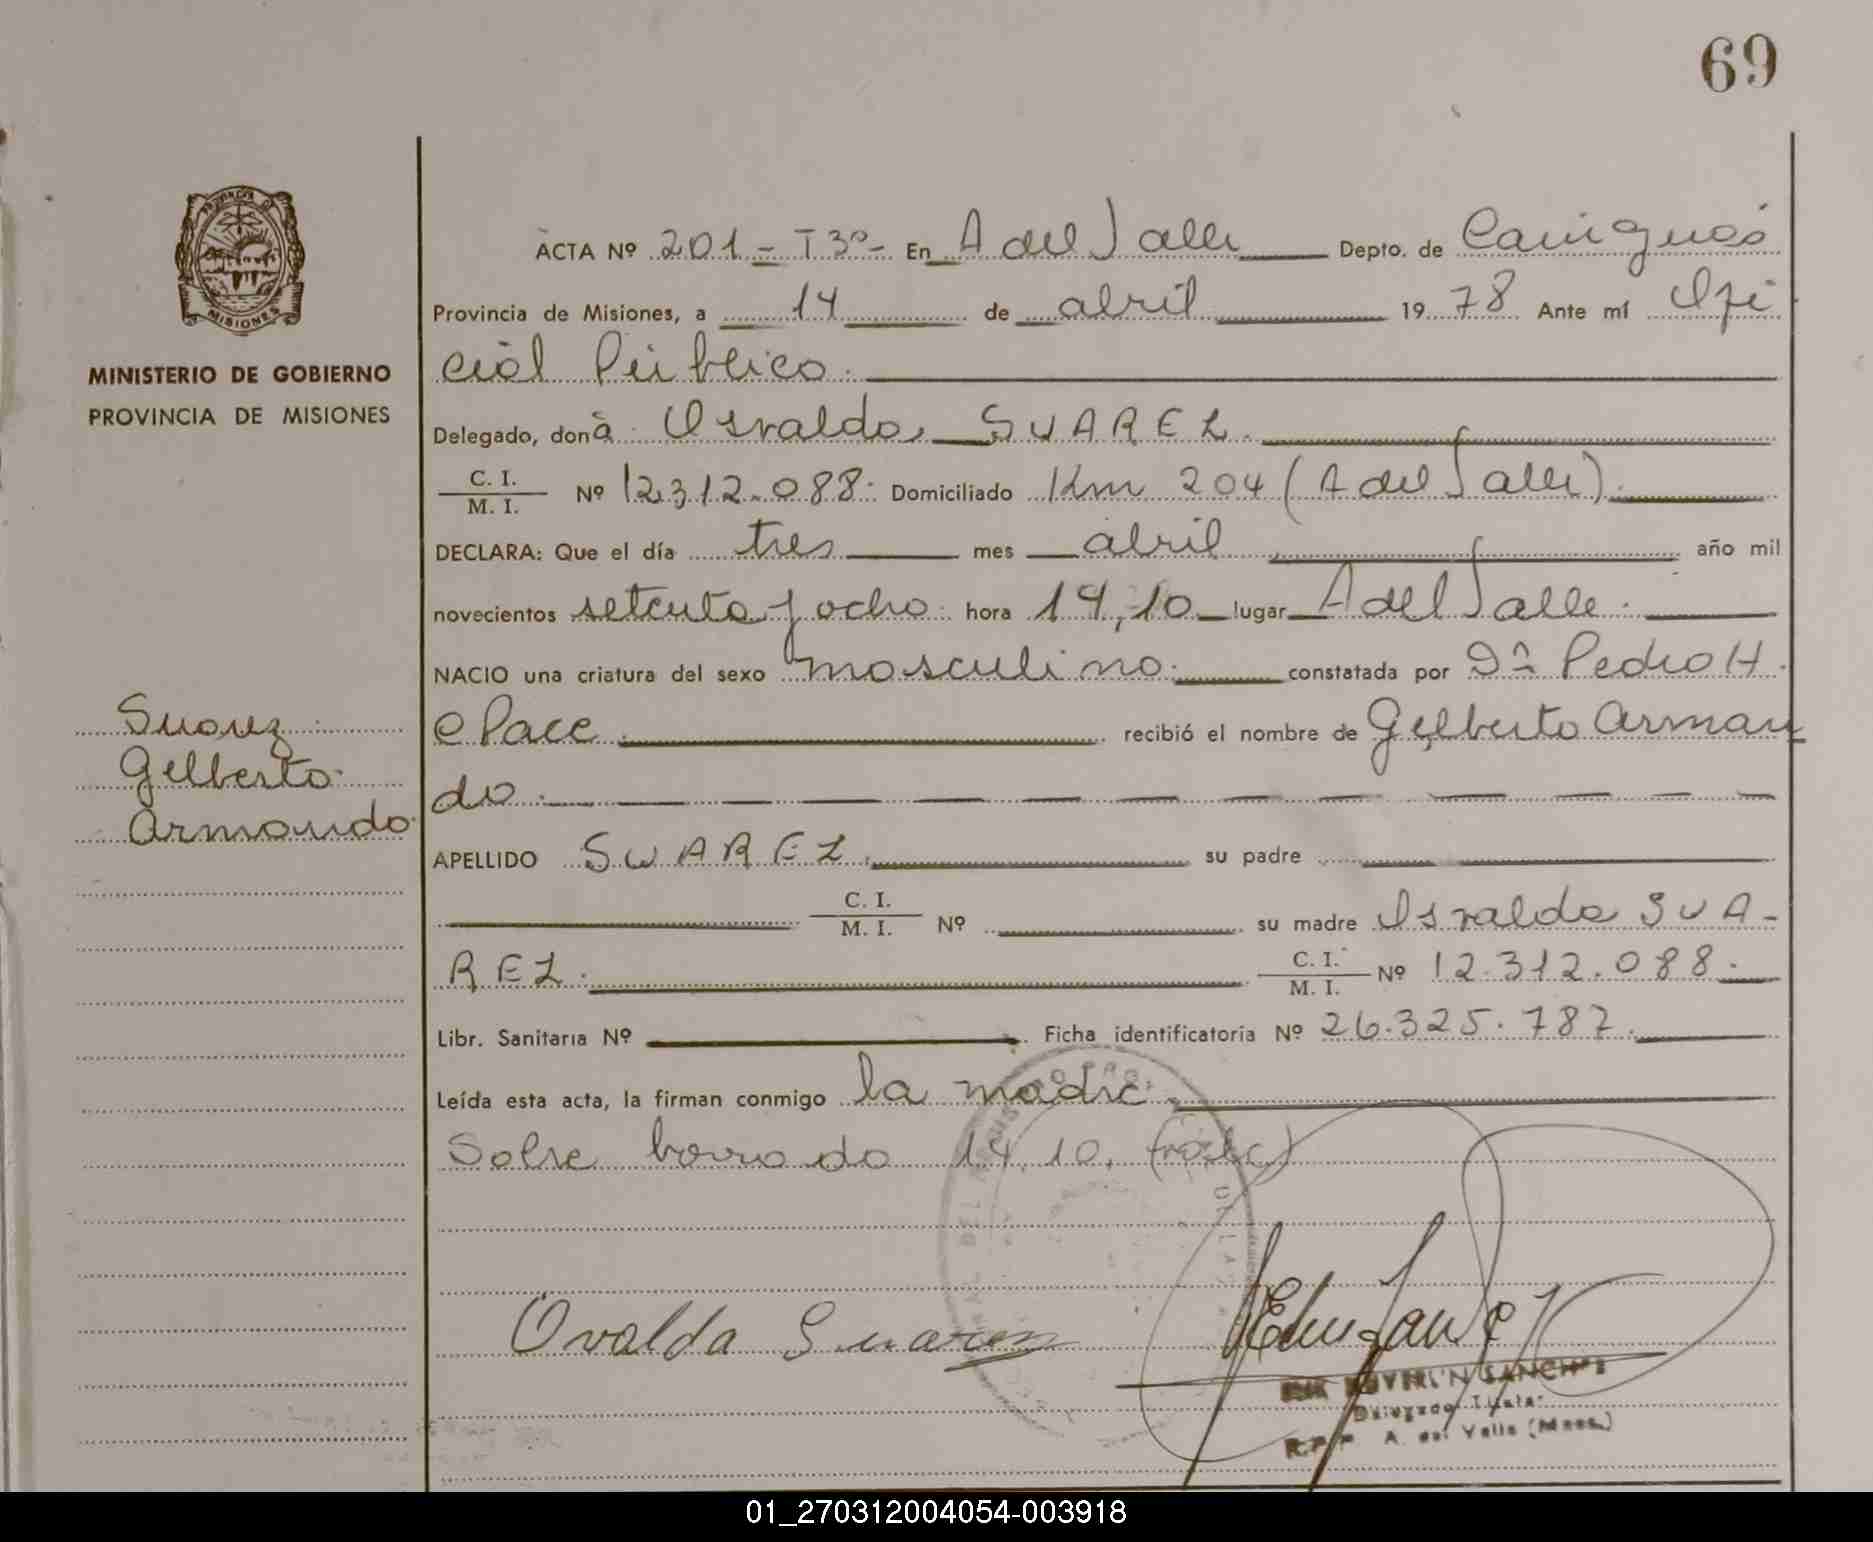 69
PROVINCIA DE
MISIONES
MINISTERIO DE GOBIERNO
PROVINCIA DE MISIONES
Suarez
Gilberto
Armando
ACTA Nº 201 - T3º - En A del Valle Depto. de Cainguás
Provincia de Misiones, a 14 de abril 1978 Ante mí Ofi
cial Público.
Delegado, dona Osvalda SUAREZ.
C. I.
M. I. Nº 12.312.088. Domiciliado Km 204 (A del Valle).
DECLARA: Que el día tres mes abril año mil
novecientos setenta y ocho. hora 14,10 lugar A del Valle.
NACIO una criatura del sexo masculino. constatada por Dn Pedro H.
recibió el nombre de Gilberto Arman
do.
APELLIDO SUAREZ. su padre
C. I.
M. I. Nº su madre Osvalda SUA-
REZ. C. I.
M. I. Nº 12.312.088.
Libr. Sanitaria Nº Ficha identificatoria Nº 26.325.787.
Leída esta acta, la firman conmigo la madre.
Sobre borrado 14.10. (vale)
Ovalda Suarez
SANCHEZ
Delegado Titular
A. del Valle (Mnes.)
01_270312004054-003918